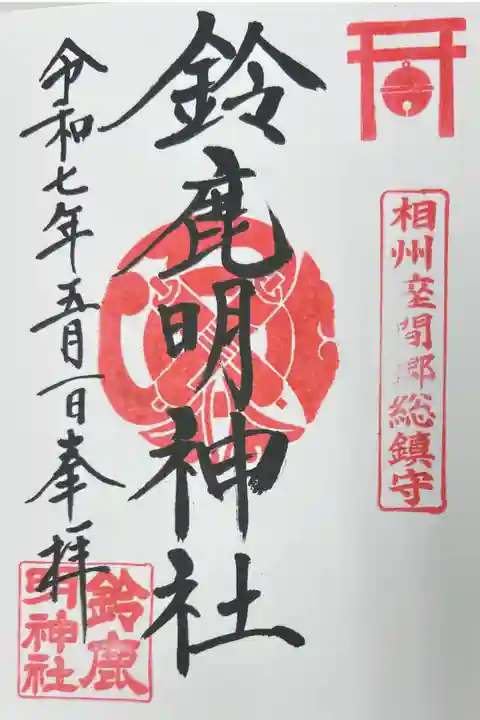 相州座間郷総鎮守
鈴鹿明神社
令和七年五月一日奉拝
鈴鹿
明神社